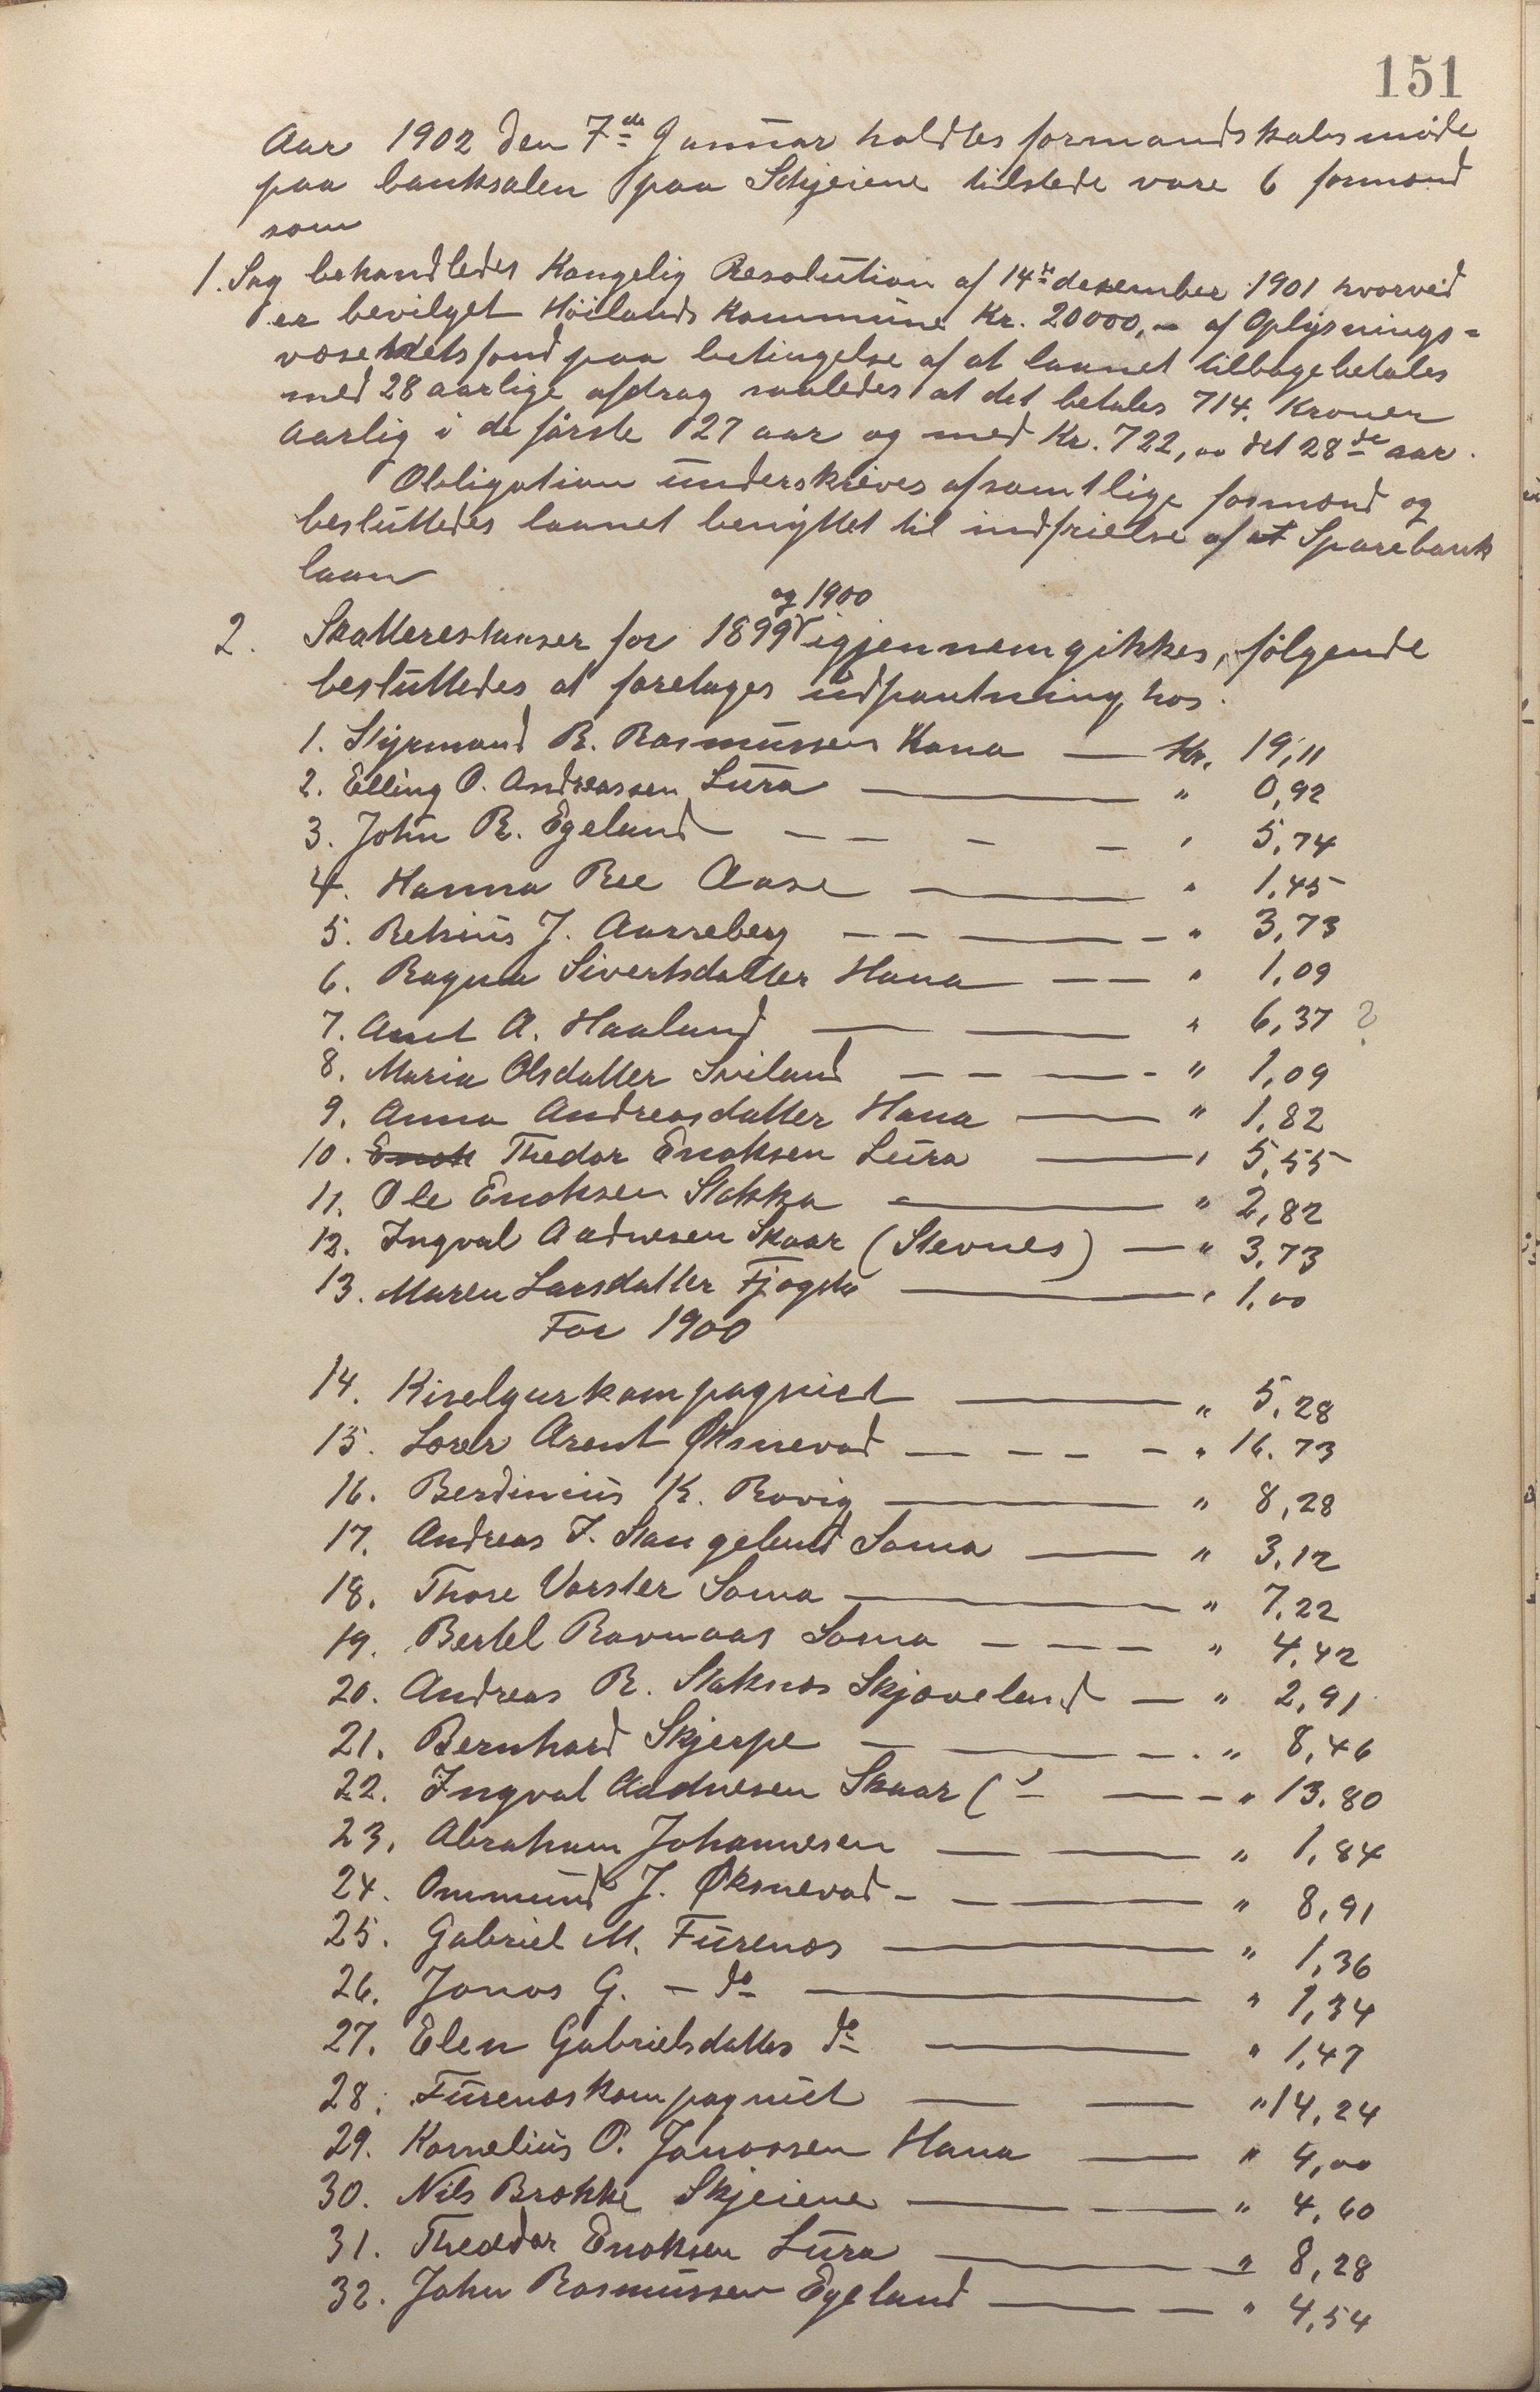 151
Aar 1902 den 7de Januar holdtes formandskabsmøde
paa banksalen paa Skjeiene tilstede vare 6 formænd
som
1. Sag behandledes Kongelig Resolution af 14de desember 1901 hvorved
er bevilget Høilands Kommune Kr. 20000,00 af Oplysnings-
væsenets fond paa betingelse af at laanet tilbagebetales
med 28 aarlige afdrag saaledes at det betales 714. Kroner
aarlig i de første 27 aar og med Kr. 722,00 det 28de aar.
Obligation underskrives af samtlige formænd og
besluttedes laanet benyttet til indfrielse af et Sparebank
laan
og 1900
2. Skatterestanser for 1899 igjennemgikkes, følgende
besluttedes at foretages udpantning hos.
1. Styrmand R. Rasmussen Hana — Kr. 19,11
2. Elling O. Andreassen Lura — " 0,92
3. John R. Egeland — — - — " 5,74
4. Hanna Ree Aase — " 1,45
5. Betsius J. Aarreberg — — — - " 3,73
6. Ragna Sivertsdatter Hana — — " 1,09
7. Arnt A. Haaland — — " 6,37 ?
8. Maria Olsdatter Sviland — — — - " 1,09
9. Anna Andreasdatter Hana — " 1,82
10. Enok Thedor Enoksen Lura — " 5,55
11. Ole Enoksen Stokka — " 2,82
12. Ingval Aadnesen Skaar (Stevnes) — " 3,73
13. Maren Larsdatter Fjogstø — " 1,00
For 1900
14. Kiselgurkompagniet — " 5,28
15. Lærer Arent Øksnevad — — — - " 16.73
16. Berdinius K. Rovig — " 8,28
17. Andreas J. Stangeland Soma — " 3,12
18. Thore Vorster Soma — " 7,22
19. Bertel Ravnaas Soma — — — " 4,42
20. Andreas R. Stoknos Skjæveland — " 2,91
21. Bernhard Skjerpe — — -. " 8,46
22. Ingval Aadnesen Skaar ( — — - " 13,80
23. Abraham Johannesen — — " 1,84
24. Ommund J. Øksnevad - — — " 8,91
25. Gabriel M. Furenæs — " 1,36
26. Jonas G. — do — " 1,34
27. Elen Gabrielsdatter do — " 1,47
28. Furenæskompagniet — — " 14,24
29. Kornelius O. Jonassen Hana — " 4,00
30. Nils Brekke Skjeiene — — " 4,60
31. Theodor Enoksen Lura — " 8,28
32. John Rasmussen Egeland — — " 4,54